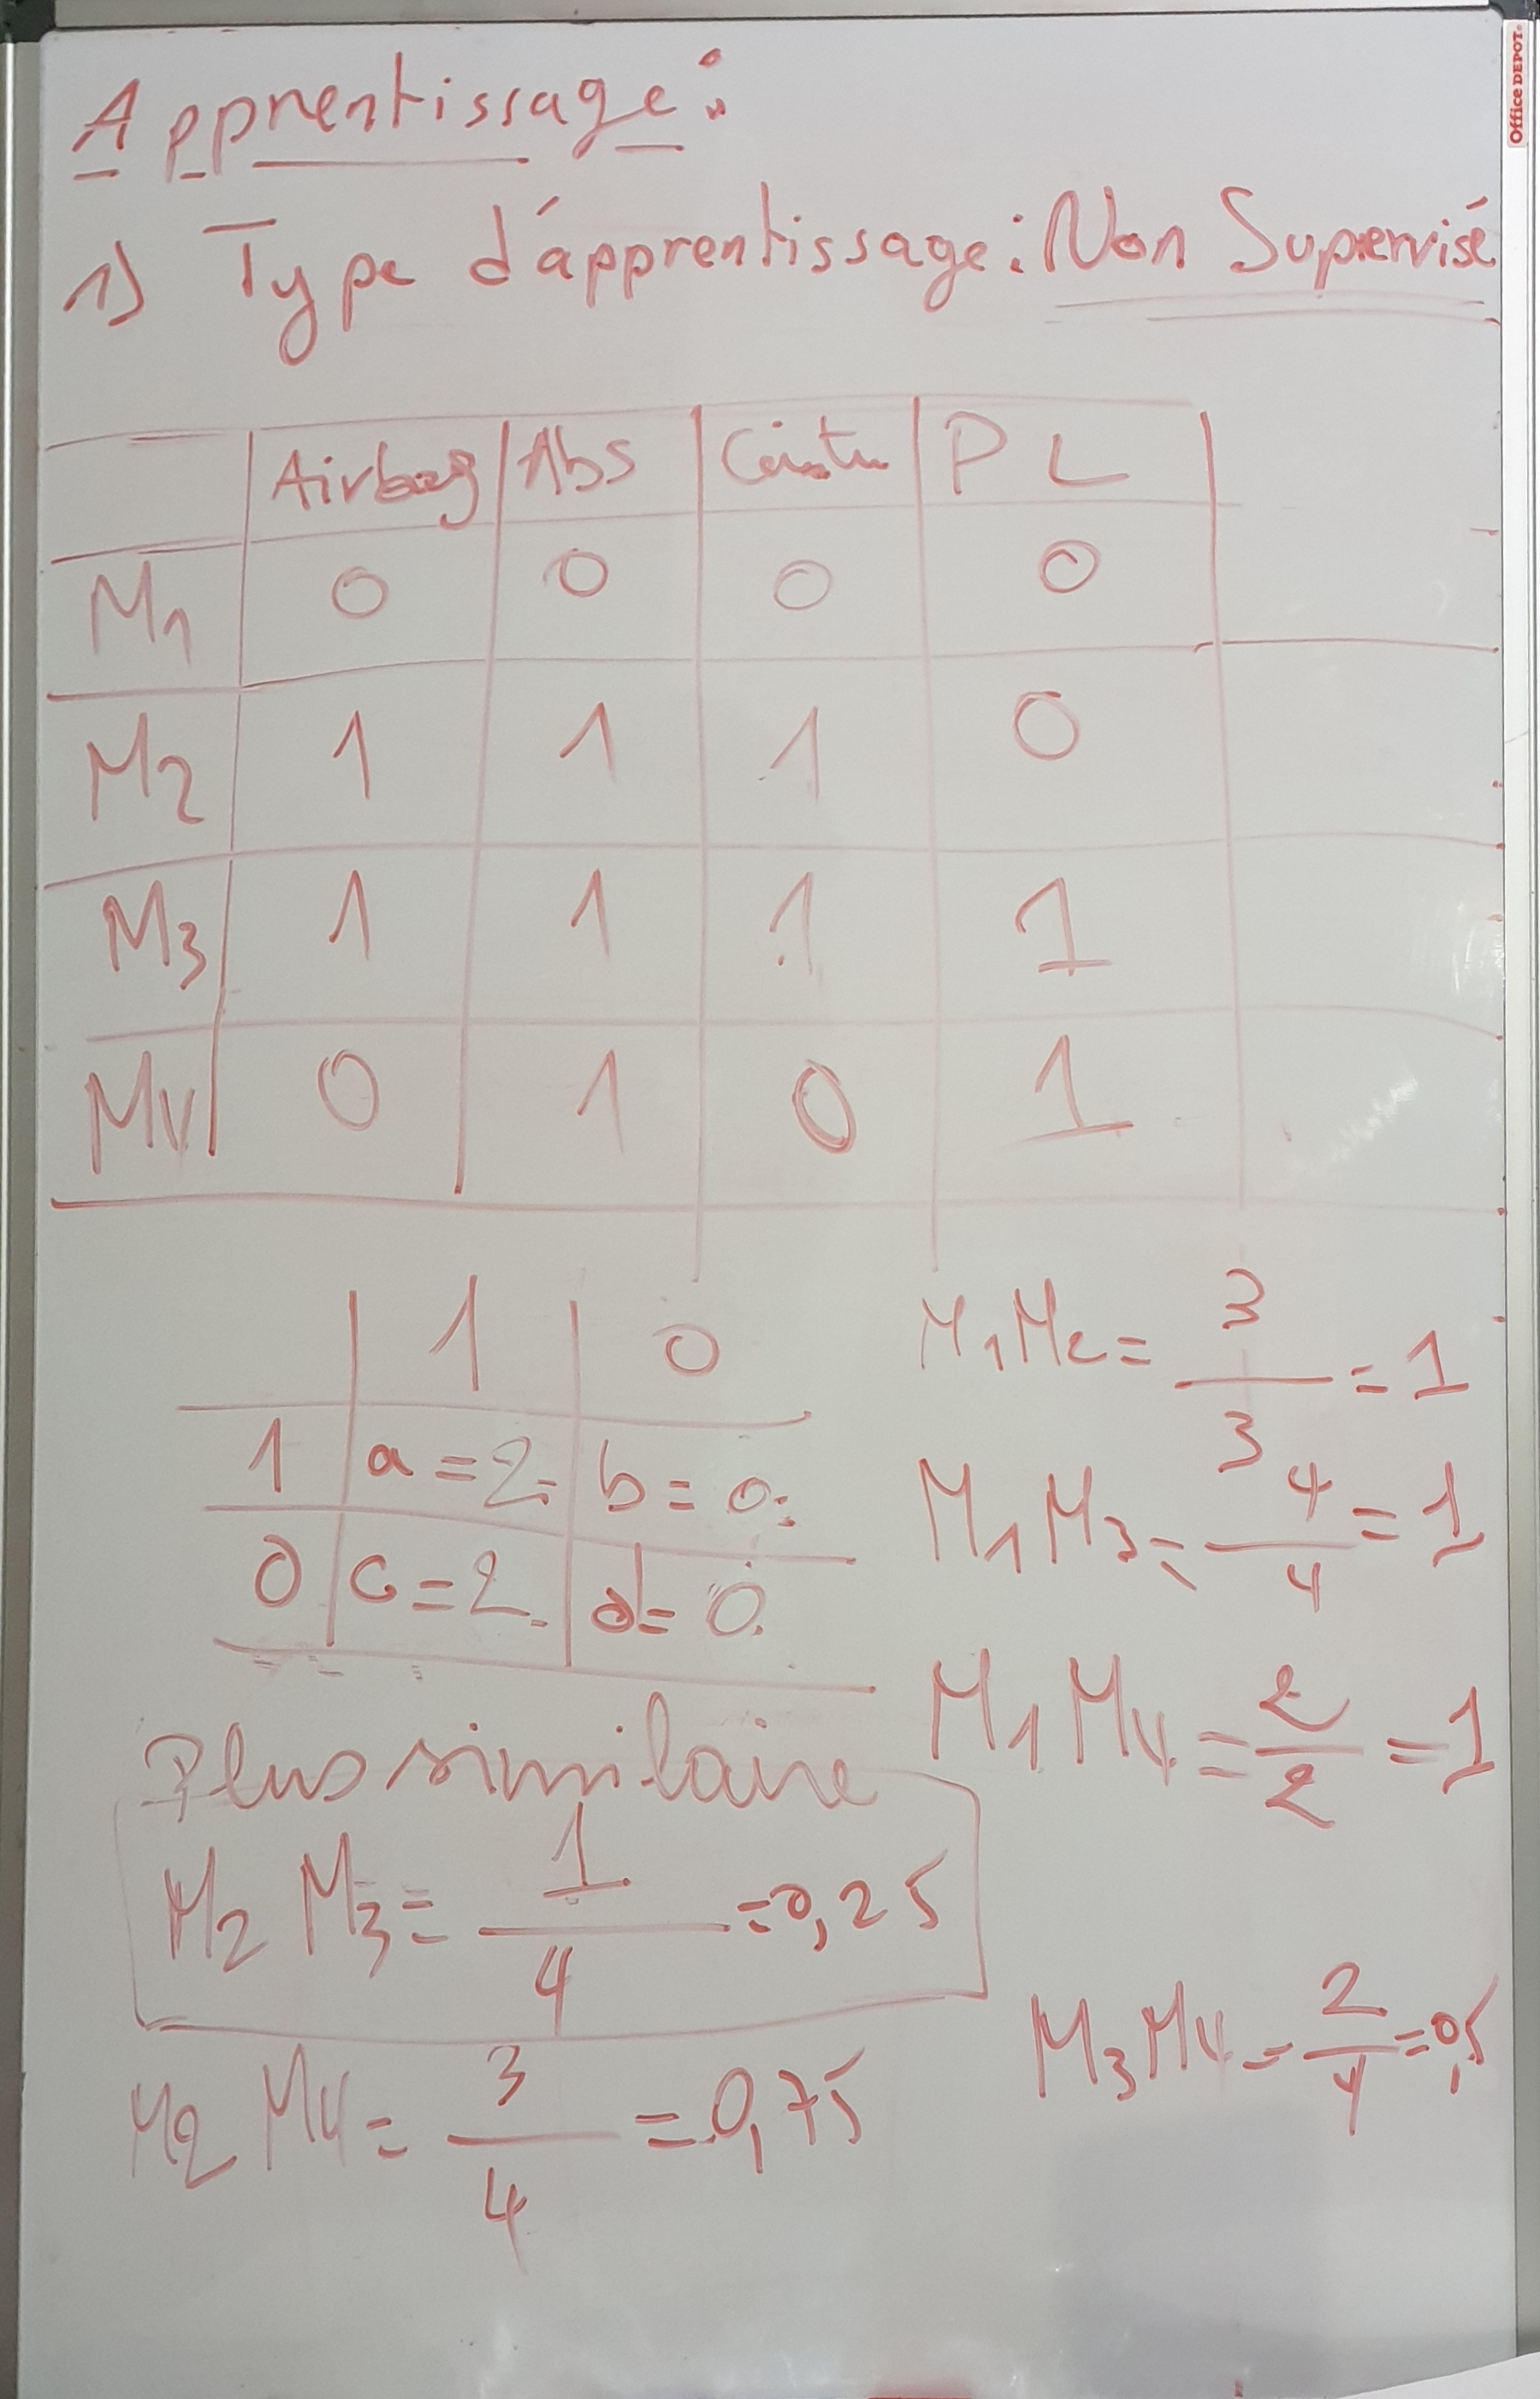 Office DEPOT.
Apprentissage:
1) Type d'apprentissage: Non Supervisé
Airbag Abs P L
M1 0 0 0 0
M2 1 1 1 0
M3 1 1 1 1
M4 0 1 0 1
1 0
1 a=2 b=0
0 c=2 d=0
M1M2= 3/3 =1
M1M3= 4/4 =1
M1M4= 2/2 =1
Plus similaire
M2 M3= 1/4 =0,25
M2 M4= 3/4 =0,75
M3M4= 2/4 =0,5